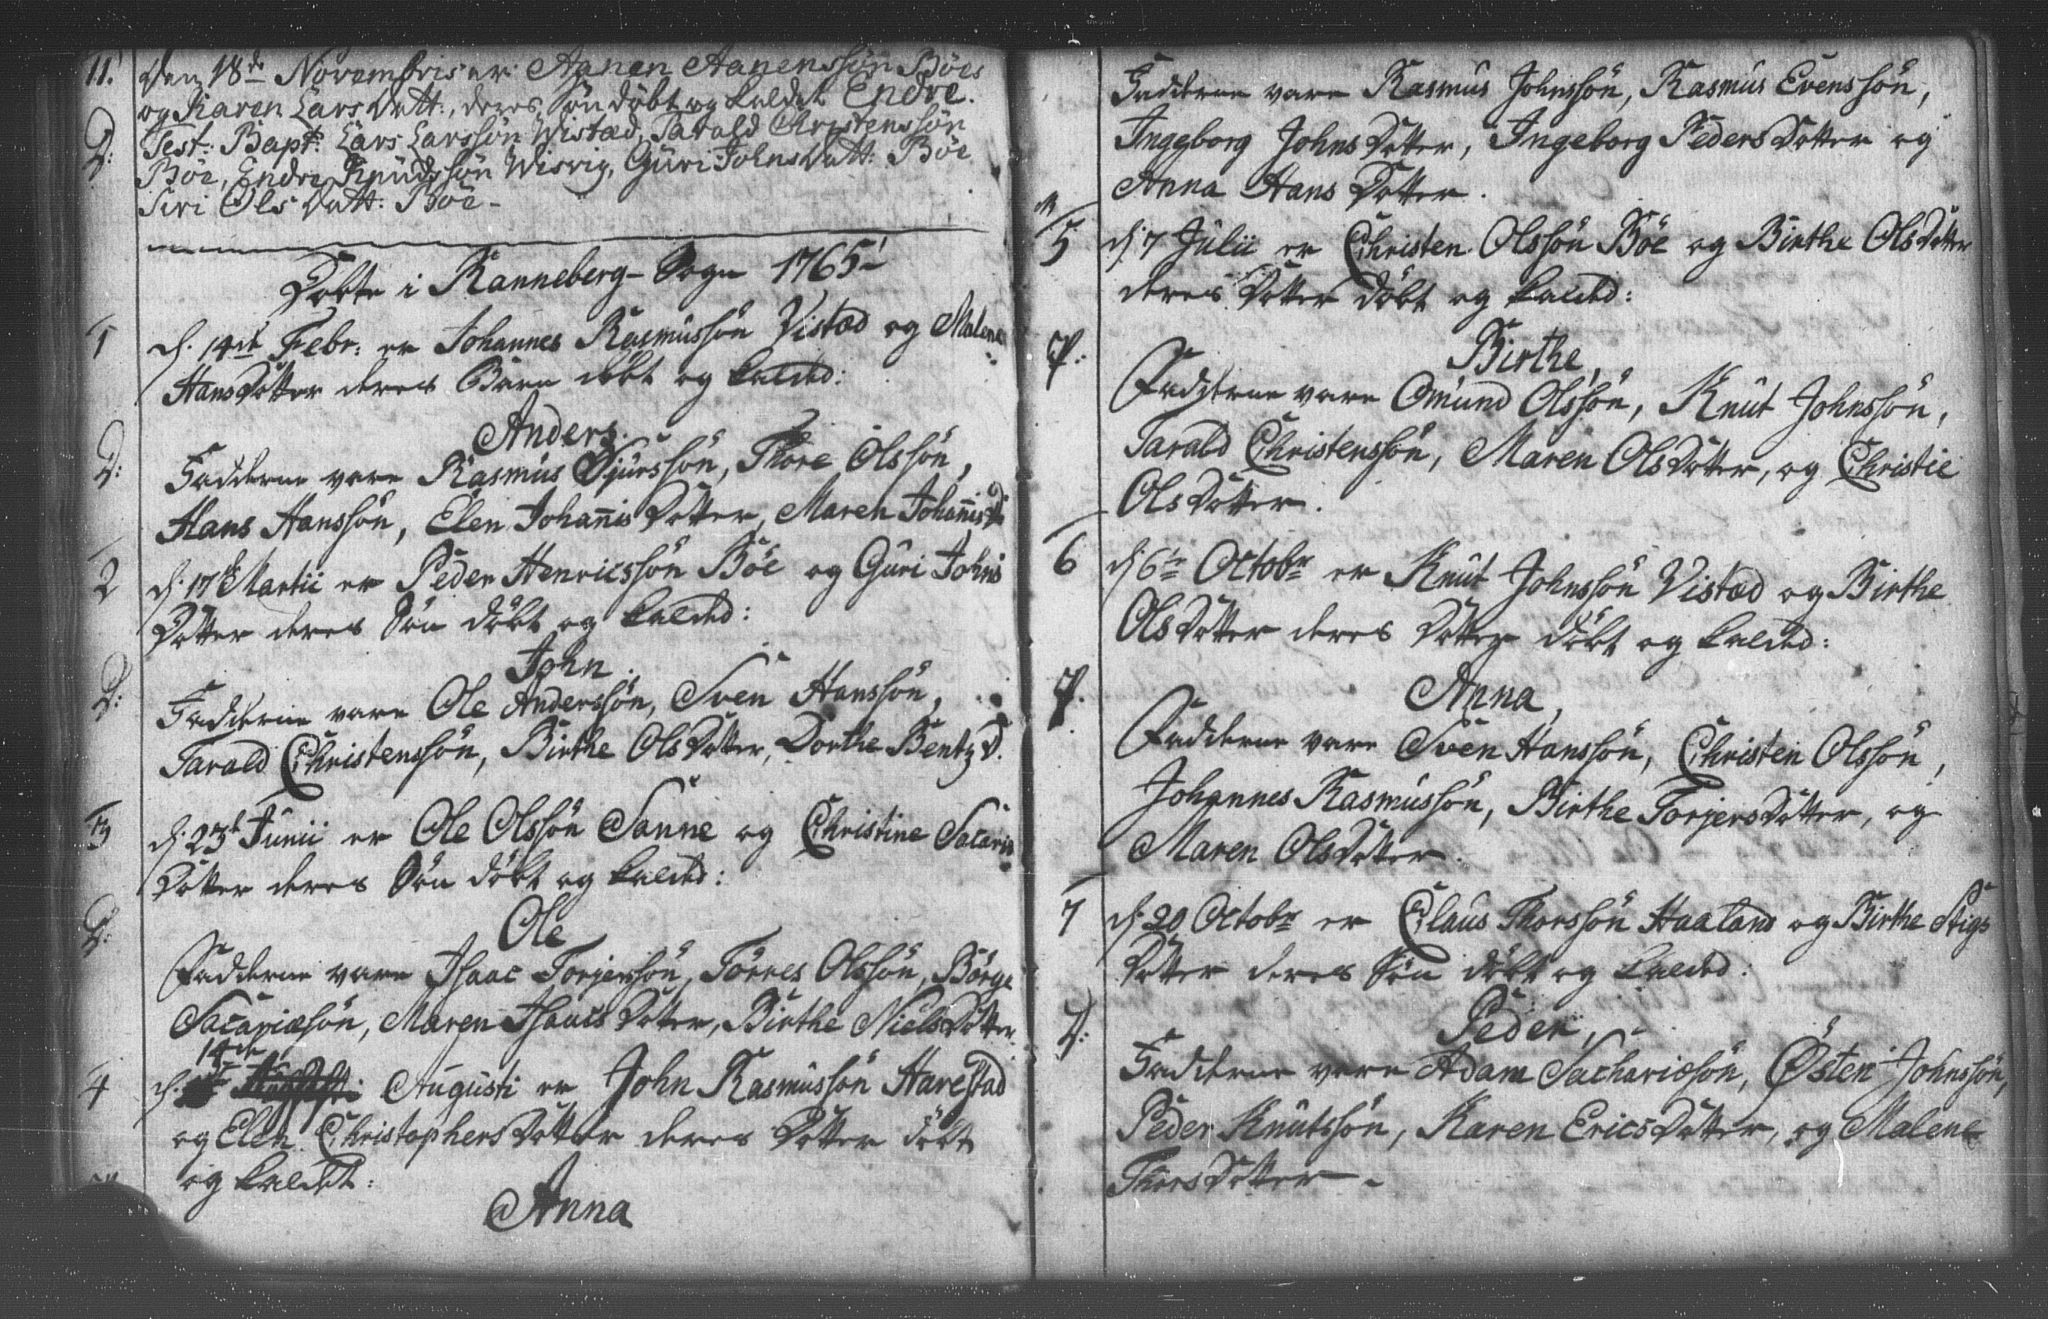 11. Den 18de Novembris er Aanen Aanenssøn Böes
og Karen Lars Datt:, deres Søn döbt og kaldet Endre.
Test: Bapt: Lars Larssøn Wistæd, Tarald Christenssøn
D: Böe, Endre Knudssøn Wisvig, Guri Johns Datt: Böe
Siri Ols Datt: Böe-
Döbte i Ranneberg-Sogn 1765
1 d. 14de Febr: er Johannes Rasmussøn Vistæd og Malene
Hans Dotter deres Barn döbt og kalded:
Anders.
D: Fadderne vare Rasmus Sjurssøn, Thore Olssøn,
Hans Hanssøn, Elen Johannis Dotter, Maren Johannis D
2 d. 17de Martii er Peder Henricssøn Böe og Guri Johns
Dotter deres Søn döbt og kalded:
John.
D: Fadderne vare Ole Anderssøn, Sven Hanssøn,
Tarald Christenssøn, Birthe Ols Dotter, Dorthe Bentz D.
3 d. 23de Junii er Ole Olssøn Sanne og Christine Sacaria
Dotter deres Søn döbt og kalded:
D: Ole
Fadderne vare Isaac Torjerssøn, Törres Olssøn, Börge
Sacariæsøn, Maren Isaacs Dotter, Birthe Niels Dotter.
14de
4 d. Augusti er John Rasmussøn Harestad
og Elen Christophers Dotter deres Dotter döbt
og kaldet:
Anna
Fadderne vare Rasmus Johnssøn, Rasmus Evenssøn,
Ingeborg Johns Dotter, Ingeborg Peders Dotter og
Anna Hans Dotter.
5 d. 7 Julii er Christen Olssøn Böe og Birthe Ols Dotter
deres Dotter döbt og kalded:
P. Birthe,
Fadderne vare Omund Olssøn, Knut Johnssøn,
Tarald Christenssøn, Maren Ols Dotter, og Christie
Ols Dotter.
6 d. 6te Octobr er Knut Johnssøn Vistæd og Birthe
Ols Dotter deres Dotter döbt og kalded:
P. Anna,
Fadderne vare Sven Hanssøn, Christen Olssøn,
Johannes Rasmussøn, Birthe Torjers Dotter, og
Maren Ols Dotter.
7 d. 20 Octobr er Claus Thorssøn Haaland og Birthe Stigs
Dotter deres Søn döbt og kalded:
D: Peder,
Fadderne vare Adam Sachariæsøn, Østen Johnssøn,
Peder Knutssøn, Karen Erics Dotter, og Malene
Thors Dotter-